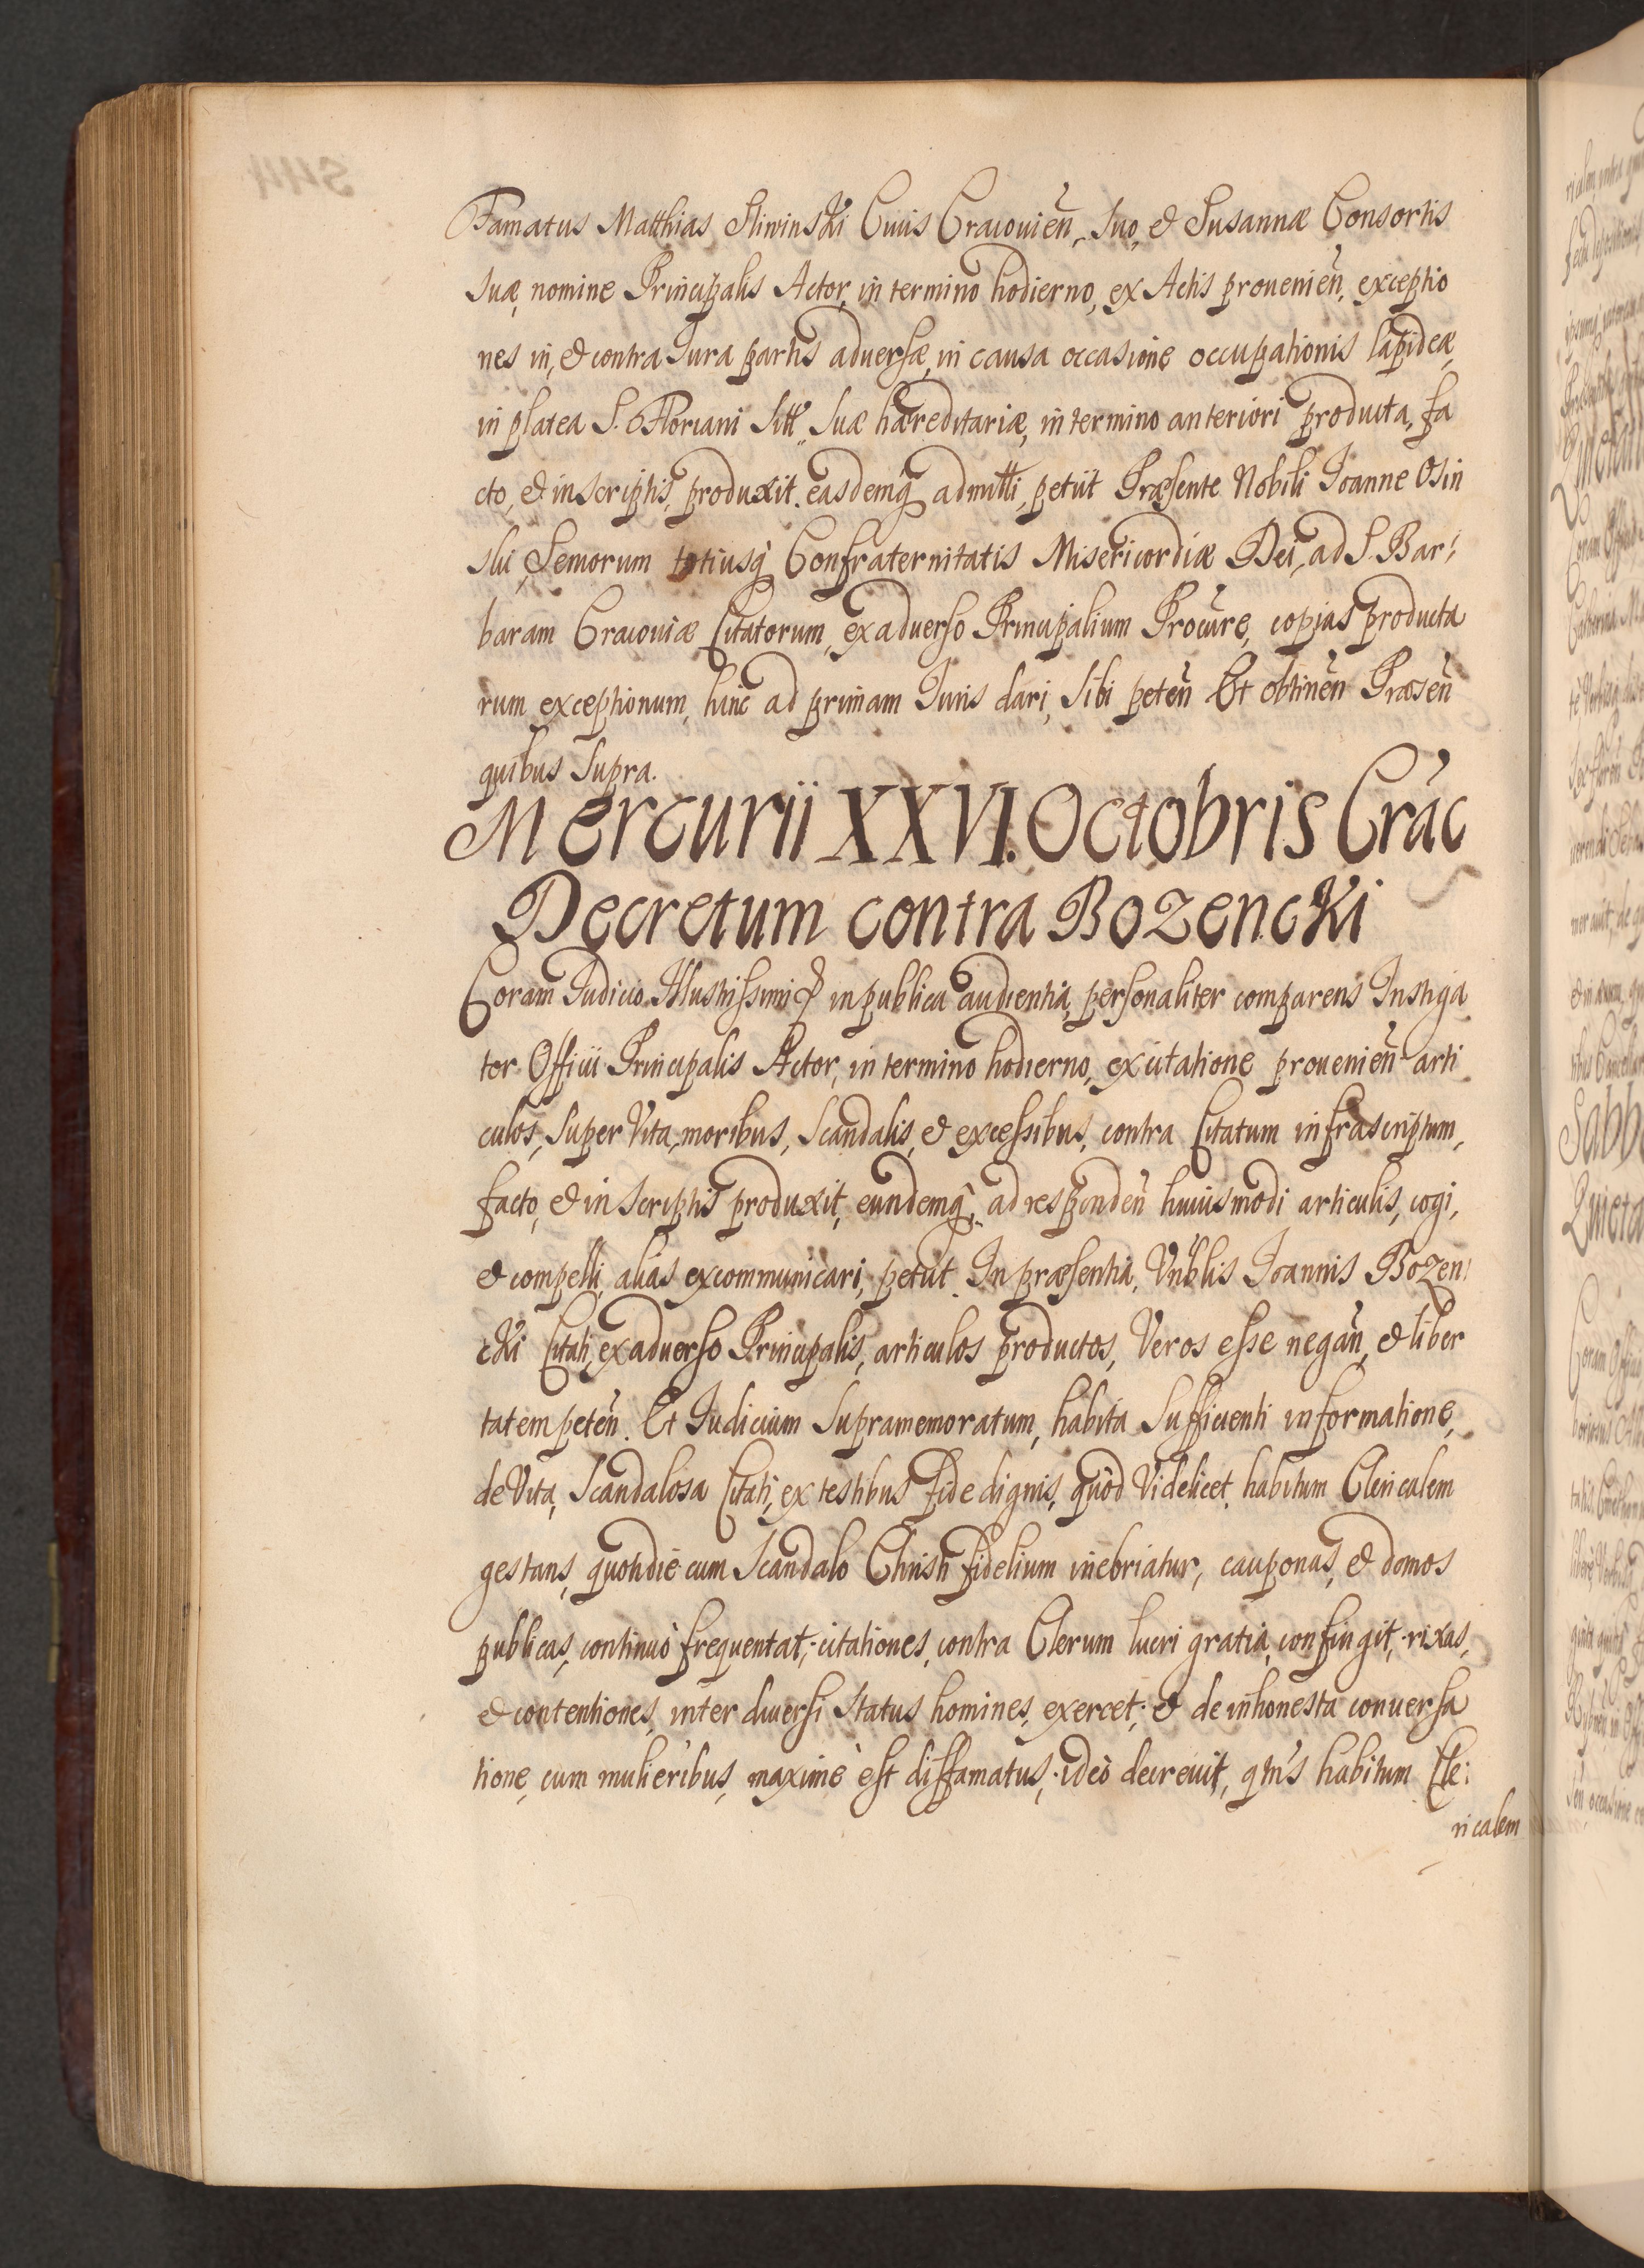 Famatus Matthias Sliwinski Ciuis Cracouien̄, suo, & Susannæ Consortis
suæ, nomine Principalis Actor, in termino hodierno, ex Actis prouenien̄, exceptio
nes in, & contra Jura partis aduersæ, in causa occasione occupationis lapideæ,
in platea S. Floriani sitt: suæ hæreditariæ, in termino anteriori producta, fa
cto, & in scriptis, produxit, easdemq́ admitti, petiit Præsente Nobili Joanne Osin
ski, Seniorum totiusq́ Confraternitatis Misericordiæ Dei, ad S. Bar:
baram Cracouiæ Citatorum, ex aduerso Principalium Procũre, copias producta
rum exceptionum, hinc ad primam Juris dari, sibi peten̄ Et obtinen̄ Præsen̄
quibus supra.
Mercurii XXVI. Octobris Crac
Decretum contra Bozencki
Coram Judicio Illustrissimi in publica audientia, personaliter comparens Instiga
tor Officii Principalis Actor, in termino hodierno, ex citatione prouenien̄ arti
culos, super Vita, moribus, Scandalis, & excessibus, contra Citatum infrascriptum,
facto, & in scriptis produxit, eundemq́, ad responden̄ huiusmodi articulis, cogi,
& compelli, alias excommunicari, petiit. In præsentia, Vn̄blis Joannis Bozen:
cki Citati, ex aduerso Principalis, articulos productos, Veros esse negan̄, & liber
tatem peten̄. Et Judicium supramemoratum, habita sufficienti informatione,
de Vita, Scandalosa Citati, ex testibus fide dignis, quòd Videlicet, habitum Clericalem
gestans, quotidie cum Scandalo Christi fidelium inebriatur, cauponas, & domos
publicas, continuò frequentat; citationes, contra Clerum lucri gratia, confingit, rixas,
& contentiones, inter diuersi status homines, exercet; & de inhonesta conuersa
tione, cum mulieribus, maximè est diffamatus, ideò decreuit, qtñs habitum Cle:
ricalem